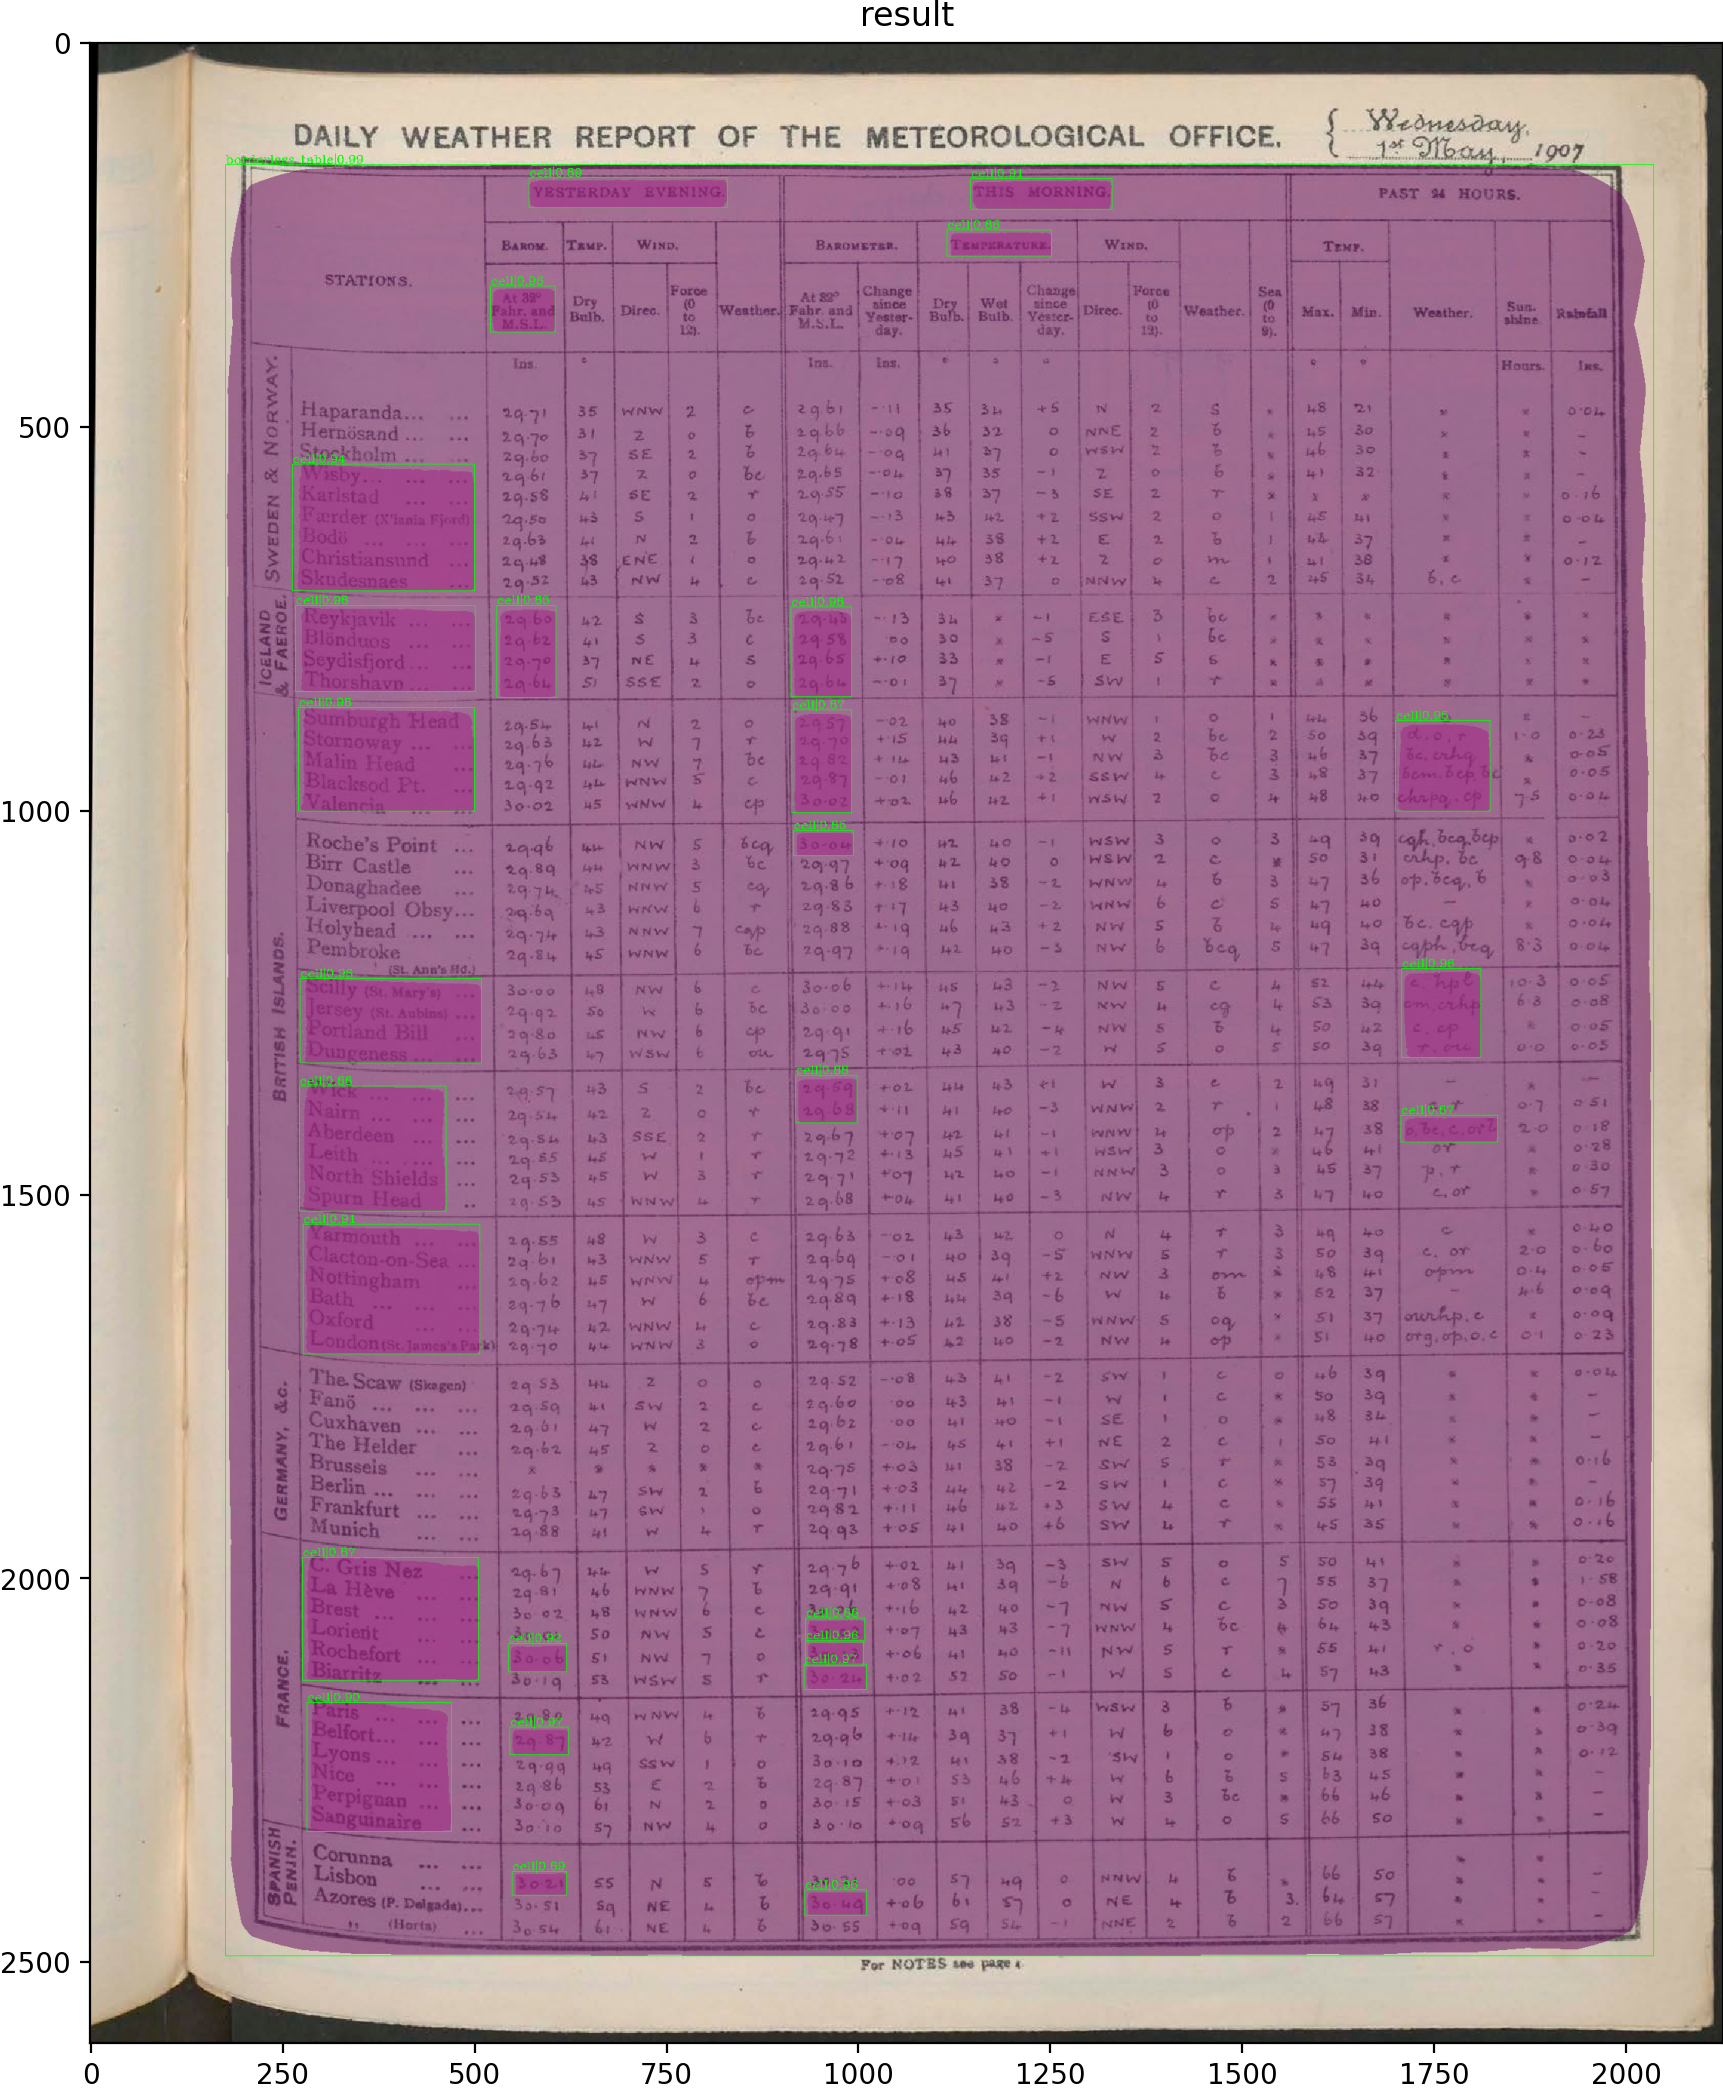 result
DAILY WEATHER REPORT OF THE METEOROLOGICAL OFFICE.
Wednesday,
1st May, 1907
borderless_table|0.99
YESTERDAY EVENING. THIS MORNING. PAST 24 HOURS.
STATIONS. BAROM. TEMP. WIND. BAROMETER. TEMPERATURE. WIND. TEMP.
At 32° Fahr. and M.S.L. Dry Bulb. Direc. Force (0 to 12). Weather. At 32° Fahr. and M.S.L. Change since Yester-day. Dry Bulb. Wet Bulb. Change since Yester-day. Direc. Force (0 to 12). Weather. Sea (0 to 9). Max. Min. Weather. Sun-shine. Rainfall
Ins. ° Ins. Ins. ° ° ° ° ° Hours. Ins.
SWEDEN & NORWAY.
Haparanda... ... 29.71 35 WNW 2 c 29.61 -.11 35 34 +5 N 2 s * 48 21 * * 0.04
Hernösand ... ... 29.70 31 Z 0 b 29.66 -.09 36 32 0 NNE 2 b * 45 30 * * -
Stockholm ... ... 29.60 37 SE 2 b 29.64 -.09 41 37 0 WSW 2 b * 46 30 * * -
Wisby... ... ... 29.61 37 Z 0 bc 29.65 -.04 37 35 -1 Z 0 b * 41 32 * * -
Karlstad ... ... 29.58 41 SE 2 r 29.55 -.10 38 37 -3 SE 2 r * * * * * 0.16
Færder (X'iania Fjord) 29.50 43 S 1 o 29.47 -.13 43 42 +2 SSW 2 o 1 45 41 * * 0.04
Bodö ... ... ... 29.63 41 N 2 b 29.61 -.04 44 38 +2 E 2 b 1 44 37 * * -
Christiansund ... 29.48 38 ENE 1 o 29.42 -.17 40 38 +2 Z 0 m 1 41 38 * * 0.12
Skudesnaes ... 29.52 43 NW 4 c 29.52 -.08 41 37 0 NNW 4 c 2 45 34 b,c * -
ICELAND & FAEROE.
Reykjavik ... ... 29.60 42 S 3 bc 29.43 -.13 34 * -1 ESE 3 bc * * * * * *
Blönduos ... 29.62 41 S 3 c 29.58 .00 30 * -5 S 1 bc * * * * * *
Seydisfjord ... ... 29.70 37 NE 4 s 29.65 +.10 33 * -1 E 5 s * * * * * *
Thorshavn ... ... 29.64 51 SSE 2 o 29.64 -.01 37 * -5 SW 1 r * * * * * *
BRITISH ISLANDS.
Sumburgh Head 29.54 41 N 2 o 29.57 -.02 40 38 -1 WNW 1 o 1 44 36 * -
Stornoway ... ... 29.63 42 W 7 r 29.70 +.15 44 39 +1 W 2 bc 2 50 39 d.o,r 1.0 0.23
Malin Head ... 29.76 44 NW 7 bc 29.82 +.14 43 41 -1 NW 3 bc 3 46 37 bc,crhq * 0.05
Blacksod Pt. ... 29.92 44 WNW 5 c 29.87 -.01 46 42 +2 SSW 4 c 3 48 37 bcm.bcp,bc * 0.05
Valencia ... ... 30.02 45 WNW 4 cp 30.02 +.02 46 42 +1 WSW 2 o 4 48 40 chrpq.cp 7.5 0.04
Roche's Point ... 29.96 44 NW 5 bcq 30.04 +.10 42 40 -1 WSW 3 o 3 49 39 cqh,bcq,bcp * 0.02
Birr Castle ... 29.89 44 WNW 3 bc 29.97 +.09 42 40 0 WSW 2 c * 50 31 crhp, bc 9.8 0.04
Donaghadee ... 29.74 45 NNW 5 cq 29.86 +.18 41 38 -2 WNW 4 b 3 47 36 op,bcq,b * 0.03
Liverpool Obsy... 29.69 43 WNW 6 r 29.83 +.17 43 40 -2 WNW 6 c 5 47 40 - * 0.04
Holyhead ... ... 29.74 43 NNW 7 cqp 29.88 +.19 46 43 +2 NW 5 b 4 49 40 bc. cqp * 0.04
Pembroke ... 29.84 45 WNW 6 bc 29.97 +.19 42 40 -3 NW 6 bcq 5 47 39 cqph,bcq 8.3 0.04
(St. Ann's Hd.)
Scilly (St. Mary's) ... 30.00 48 NW 6 c 30.06 +.14 45 43 -2 NW 5 c 4 52 44 c, hpb 10.3 0.05
Jersey (St. Aubins) ... 29.92 50 W 6 bc 30.00 +.16 47 43 -2 NW 4 cq 4 53 39 om,crhp 6.3 0.08
Portland Bill ... 29.80 45 NW 6 cp 29.91 +.16 45 42 -4 NW 5 b 4 50 42 c, cp * 0.05
Dungeness ... ... 29.63 47 WSW 6 ou 29.75 +.02 43 40 -2 W 5 o 5 50 39 r, ou 0.0 0.05
Wick ... ... ... 29.57 43 S 2 bc 29.59 +.02 44 43 +1 W 3 c 2 49 31 - * -
Nairn ... ... ... 29.54 42 Z 0 r 29.68 +.11 41 40 -3 WNW 2 r 1 48 38 0.7 0.51
Aberdeen ... ... 29.54 43 SSE 2 r 29.67 +.07 42 41 -1 WNW 4 op 2 47 38 o,bc,c,orb 2.0 0.18
Leith ... ... ... 29.55 45 W 1 r 29.72 +.13 45 41 +1 WSW 3 o * 46 41 or * 0.28
North Shields ... 29.53 45 W 3 r 29.71 +.07 42 40 -1 NNW 3 o 3 45 37 p,r * 0.30
Spurn Head .. 29.53 45 WNW 4 r 29.68 +.04 41 40 -3 NW 4 r 3 47 40 c,or * 0.57
Yarmouth ... ... 29.55 48 W 3 c 29.63 -.02 43 42 0 N 4 r 3 49 40 c * 0.40
Clacton-on-Sea ... 29.61 43 WNW 5 r 29.69 -.01 40 39 -5 WNW 5 r 3 50 39 c, or 2.0 0.60
Nottingham ... 29.62 45 WNW 4 opm 29.75 +.08 45 41 +2 NW 3 om * 48 41 opm 0.4 0.05
Bath ... ... ... 29.76 47 W 6 bc 29.89 +.18 44 39 -6 W 4 b * 52 37 - 4.6 0.09
Oxford ... ... 29.74 42 WNW 4 c 29.83 +.13 42 38 -5 WNW 5 oq * 51 37 ourhp,c * 0.09
London (St. James's Park) 29.70 44 WNW 3 o 29.78 +.05 42 40 -2 NW 4 op * 51 40 orq,op,o,c 0.1 0.23
GERMANY, &c.
The Scaw (Skagen) 29.53 44 Z 0 o 29.52 -.08 43 41 -2 SW 1 c 0 46 39 * * 0.04
Fanö ... ... ... 29.59 41 SW 2 c 29.60 .00 43 41 -1 W 1 c * 50 39 * * -
Cuxhaven ... ... 29.61 47 W 2 c 29.62 .00 41 40 -1 SE 1 o * 48 34 * * -
The Helder ... 29.62 45 Z 0 c 29.61 -.04 45 41 +1 NE 2 c 1 50 41 * * -
Brussels ... ... * * * * * 29.75 +.03 41 38 -2 SW 5 r * 53 39 * * 0.16
Berlin ... ... ... 29.63 47 SW 2 b 29.71 +.03 44 42 -2 SW 1 c * 57 39 * * -
Frankfurt ... ... 29.73 47 SW 1 o 29.82 +.11 46 42 +3 SW 4 c * 55 41 * * 0.16
Munich ... ... 29.88 41 W 4 r 29.93 +.05 41 40 +6 SW 4 r * 45 35 * * 0.16
FRANCE.
C. Gris Nez ... 29.67 44 W 5 r 29.76 +.02 41 39 -3 SW 5 o 5 50 41 * * 0.20
La Hève ... ... 29.81 46 WNW 7 b 29.91 +.08 41 39 -6 N 6 c 7 55 37 * * 1.58
Brest ... ... ... 30.02 48 WNW 6 c +.16 42 40 -7 NW 5 c 3 50 39 * * 0.08
Lorient ... ... 50 NW 5 c +.07 43 43 -7 WNW 4 bc 4 64 43 * * 0.08
Rochefort ... ... 30.06 51 NW 7 o +.06 41 40 -11 NW 5 r * 55 41 r.o * 0.20
Biarritz ... ... 30.19 53 WSW 5 r 30.24 +.02 52 50 -1 W 5 c 4 57 43 * * 0.35
Paris ... ... ... 29.80 49 WNW 4 b 29.95 +.12 41 38 -4 WSW 3 b * 57 36 * * 0.24
Belfort... ... ... 29.87 42 W 6 r 29.96 +.14 39 37 +1 W 6 o * 47 38 * * 0.39
Lyons ... ... ... 29.99 49 SSW 1 o 30.10 +.12 41 38 -2 SW 1 o * 54 38 * * 0.12
Nice ... ... ... 29.86 53 E 2 b 29.87 +.01 53 46 +4 W 6 b 5 63 45 * * -
Perpignan ... ... 30.09 61 N 2 o 30.15 +.03 51 43 0 W 3 bc * 66 46 * * -
Sanguinaire ... 30.10 57 NW 4 o 30.10 +.09 56 52 +3 W 4 o 5 66 50 * * -
SPANISH PENIN.
Corunna ... ...
Lisbon ... ... 30.21 55 N 5 b .00 57 49 0 NNW 4 b * 66 50 * * -
Azores (P. Delgada)... 30.51 59 NE 4 b 30.49 +.06 61 57 0 NE 4 b 3 64 57 * * -
" (Horta) ... 30.54 61 NE 4 b 30.55 +.09 59 54 -1 NNE 2 b 2 66 57 * * -
For NOTES see page 4
0
500
1000
1500
2000
2500
0 250 500 750 1000 1250 1500 1750 2000